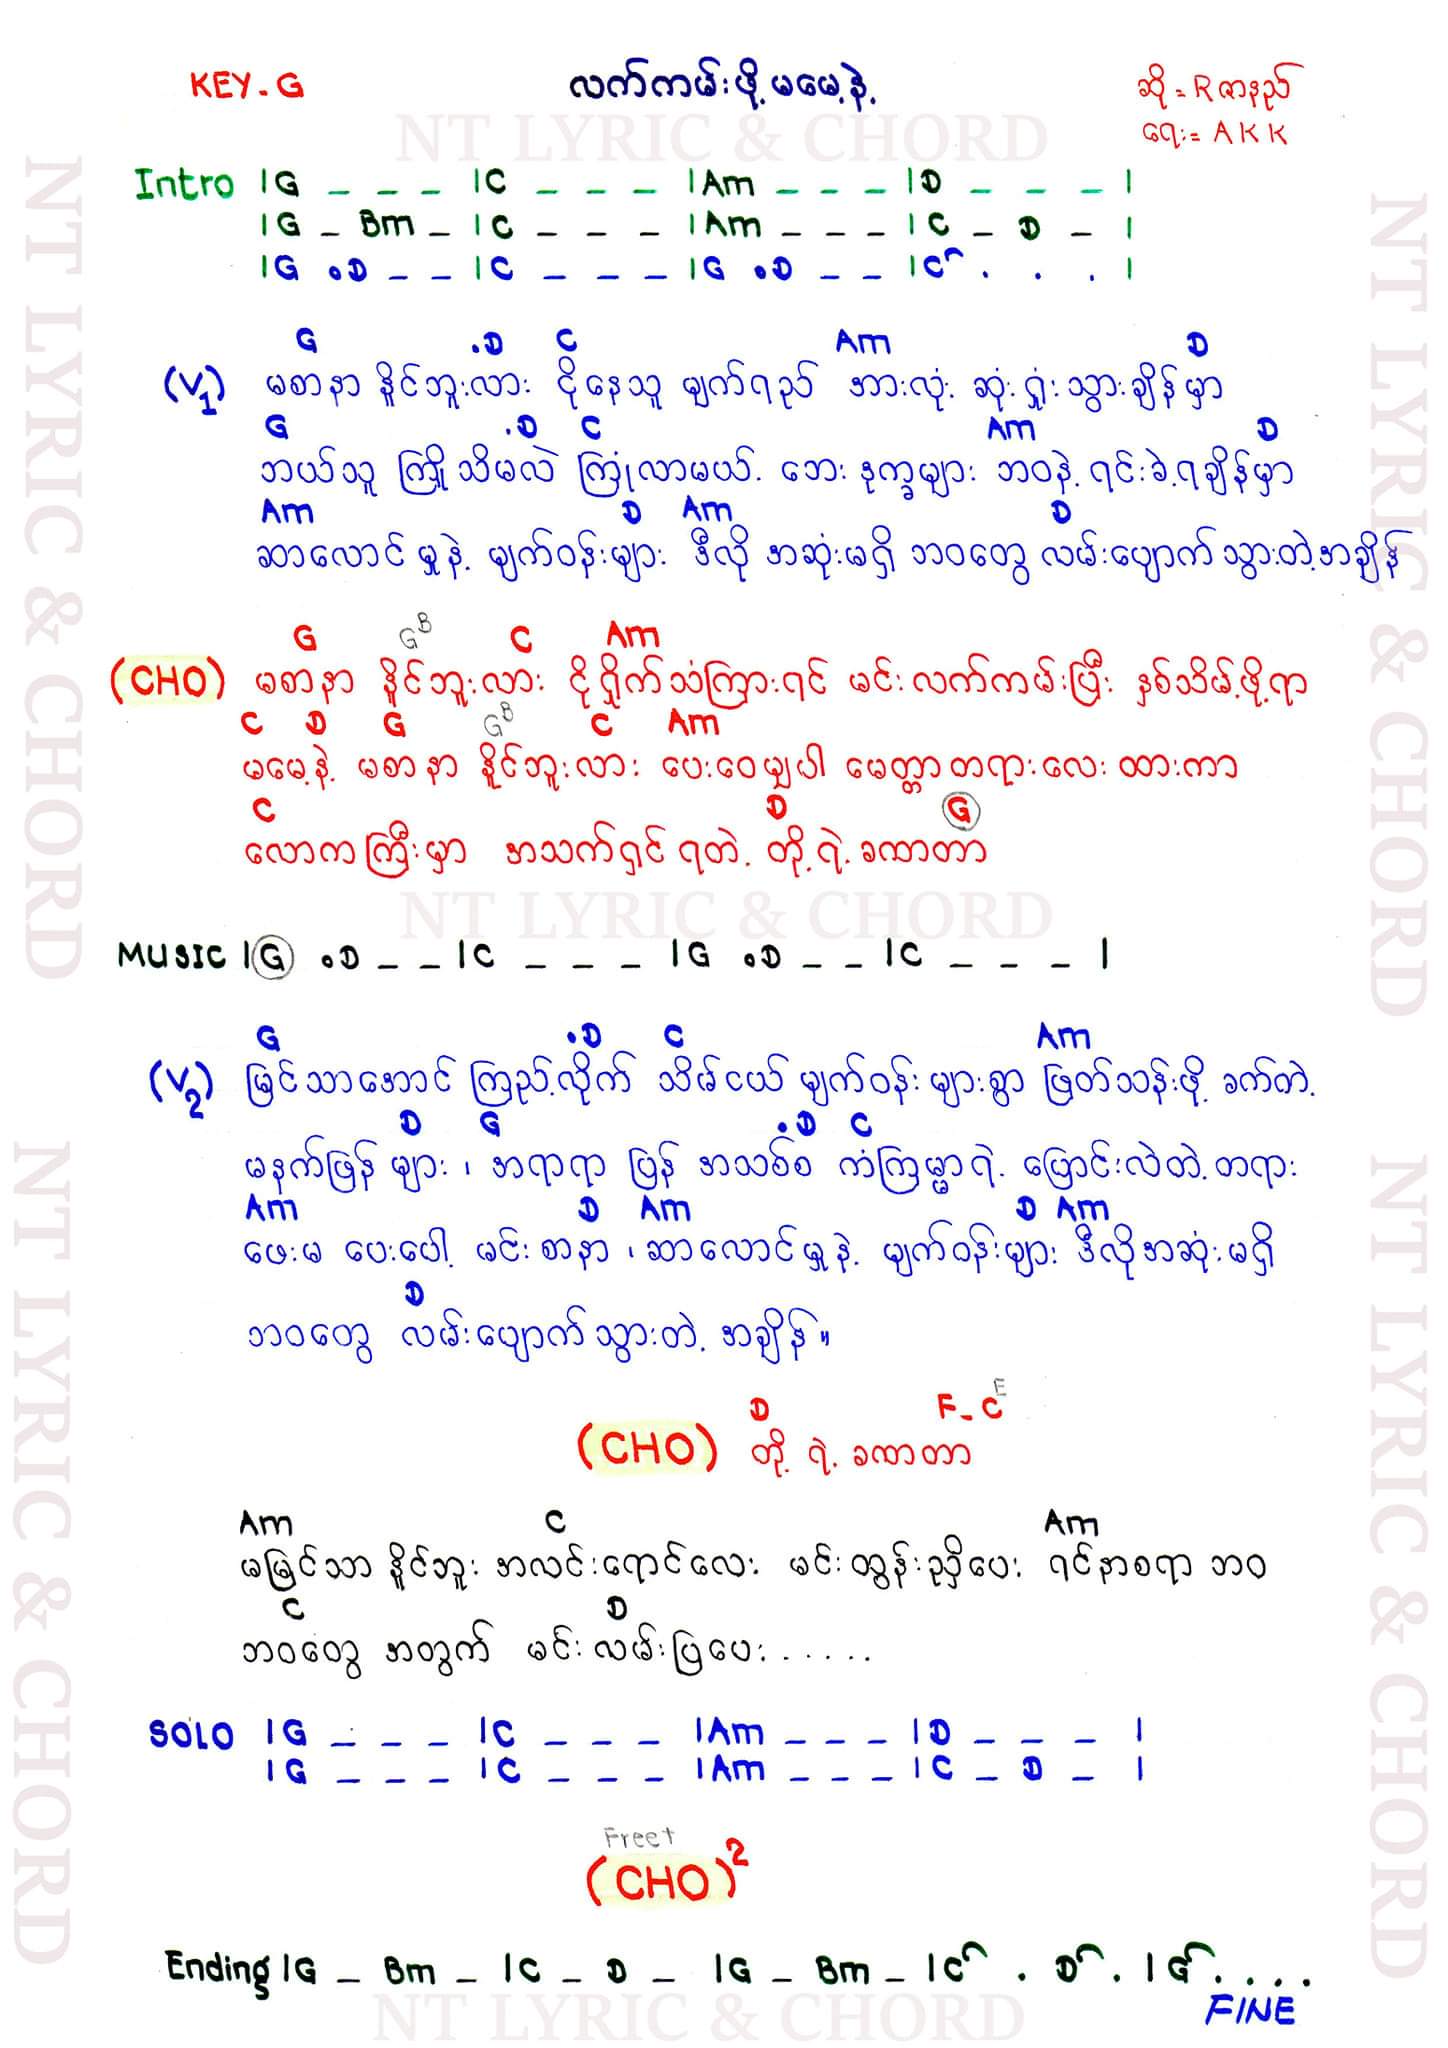 KEY.G လက်ကမ်းဖို့မမေ့နဲ့ ဆို = R ဇာနည်
ရေး = A K K
NT LYRIC & CHORD
Intro |G _ _ _ |C _ _ _ |Am _ _ _ |D _ _ _ |
|G _ Bm _ |C _ _ _ |Am _ _ _ |C _ D _ |
|G .D _ _ |C _ _ _ |G .D _ _ |C . . . |
G .D C Am D
(V1) မစာနာ နိူင်ဘူးလား ငိုနေသူ မျက်ရည် အားလုံး ဆုံးရှုံးသွားချိန်မှာ
G .D C Am D
ဘယ်သူ ကြိုသိမလဲ ကြုံလာမယ့် ဘေးဒုက္ခများ ဘဝနဲ့ ရင်းခဲ့ရချိန်မှာ
Am D Am D
ဆာလောင်မှုနဲ့ မျက်ဝန်းများ ဒီလို အဆုံးမရှိ ဘဝတွေ လမ်းပျောက်သွားတဲ့အချိန်
G GB C Am
(CHO) မစာနာ နိူင်ဘူးလား ငိုရှိုက်သံကြားရင် မင်းလက်ကမ်းပြီး နှစ်သိမ့်ဖို့ရာ
C D G GB C Am
မမေ့နဲ့ မစာနာ နိူင်ဘူးလား ပေးဝေမျှပါ မေတ္တာတရားလေးထားကာ
C D G
လောကကြီးမှာ အသက်ရှင်ရတဲ့ တို့ရဲ့ခဏတာ
NT LYRIC & CHORD
MUSIC |G .D _ _ |C _ _ _ |G .D _ _ |C _ _ _ |
G .D C Am
(V2) မြင်သာအောင် ကြည့်လိုက် သိမ်ငယ် မျက်ဝန်းများစွာ ဖြတ်သန်းဖို့ ခက်တဲ့
D G .D C
မနက်ဖြန်များ ၊ အရာရာ ပြန်အသစ်စ ကံကြမ္မာရဲ့ ပြောင်းလဲတဲ့တရား
Am D Am D Am
ဖေးမ ပေးပေါ့ မင်းစာနာ ၊ ဆာလောင်မှုနဲ့ မျက်ဝန်းများ ဒီလိုအဆုံးမရှိ
D
ဘဝတွေ လမ်းပျောက်သွားတဲ့ အချိန်။
D F - CE
(CHO) တို့ ရဲ့ ခဏတာ
Am C Am
မမြင်သာ နိူင်ဘူး အလင်းရောင်လေး မင်းထွန်းညှိပေး ရင်နာစရာ ဘဝ
C D
ဘဝတွေ အတွက် မင်းလမ်းပြပေး......
SOLO |G _ _ _ |C _ _ _ |Am _ _ _ |D _ _ _ |
|G _ _ _ |C _ _ _ |Am _ _ _ |C _ D _ |
Freet
(CHO)2
Ending |G _ Bm _ |C _ D _ |G _ Bm _ |C . D . |G ....
NT LYRIC & CHORD
FINE
NT LYRIC & CHORD
NT LYRIC & CHORD
NT LYRIC & CHORD
NT LYRIC & CHORD